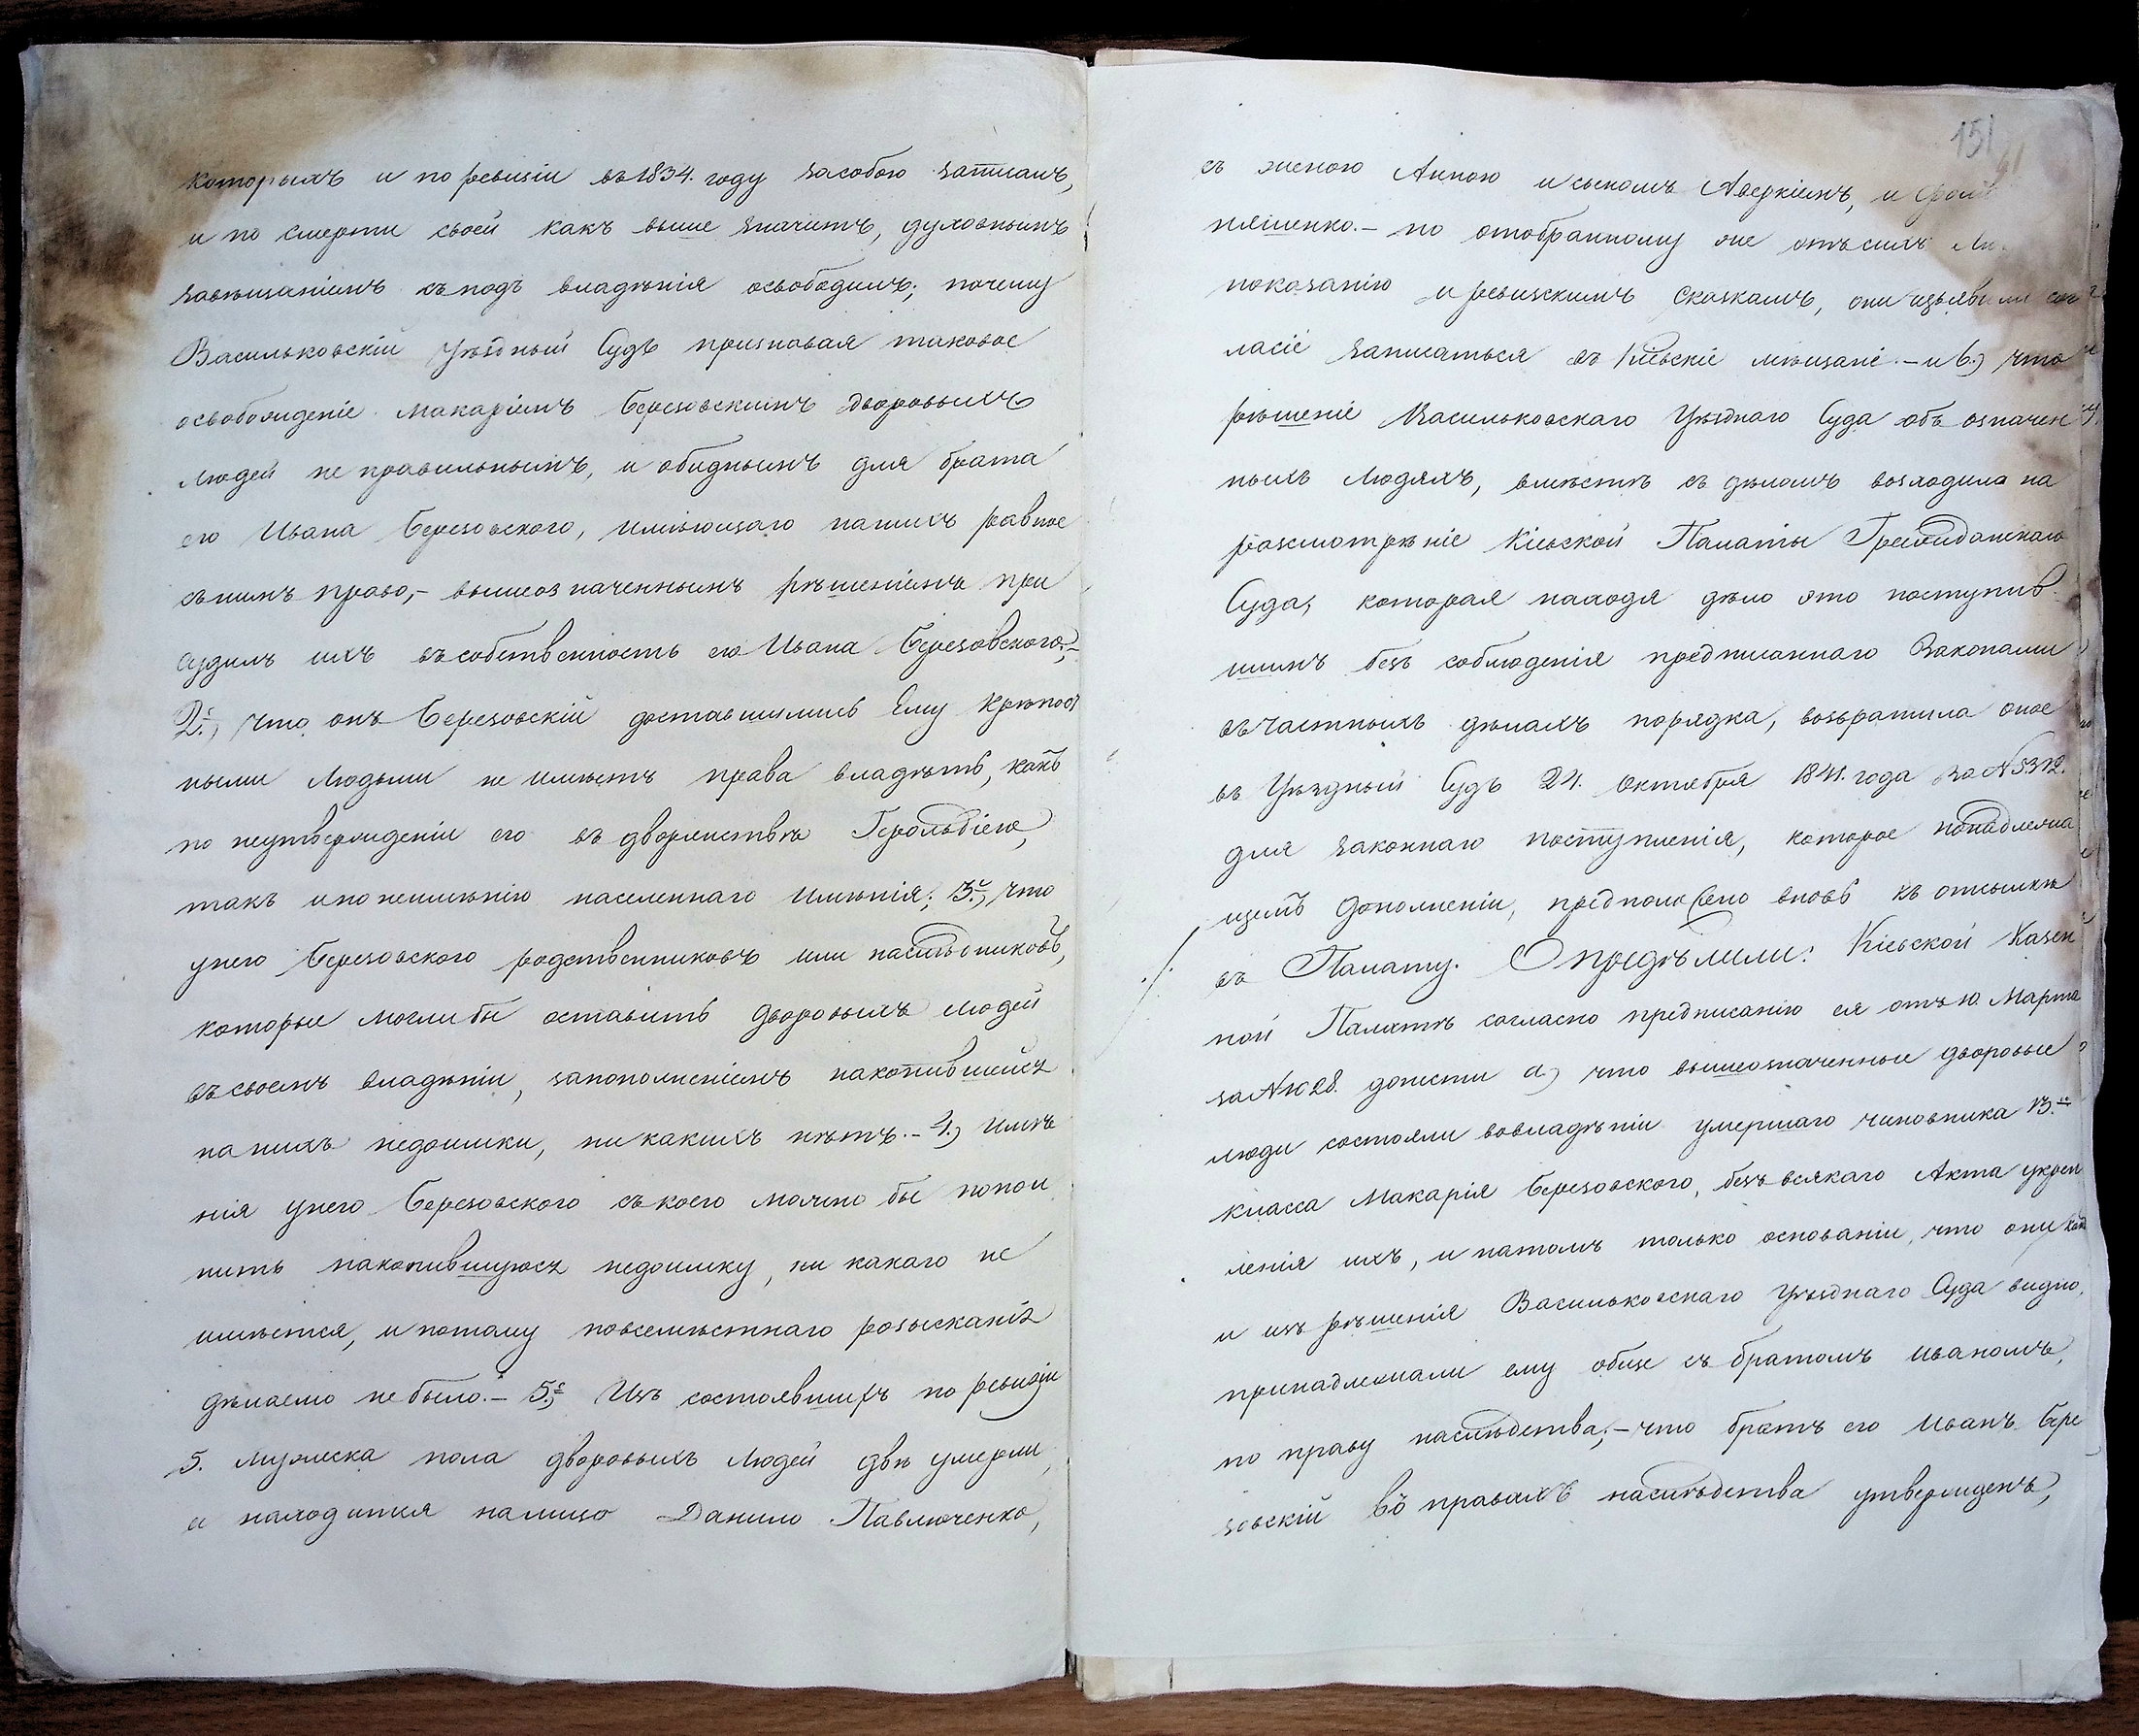 которыхъ и по ревизіи въ 1834. году засобою записанъ,
и по смерти своей какъ выше значитъ, духовнымъ
завѣщаніемъ съподъ владѣнія освободилъ; почему
Васильковскій Уѣздный Судъ признавая таковое
освобожденіе Макаріемъ Березовскимъ дворовыхъ
людей не правильнымъ, и обиднымъ для брата
его Ивана Березовского, имѣющаго нанихъ равное
сънимъ право,- вышеозначеннымъ рѣшеніемъ при
судилъ ихъ въсобственность его Ивана Березовского;-
2е., что онъ Березовскій доставшимись Ему крѣпост
ными людьми не имѣетъ права владѣть, какъ
по неутвержденіи его въ дворянствѣ Герольдіею,
такъ ипонеимѣнію населеннаго имѣнія; 3е., что
унего Березовского родственниковъ или наслѣдниковъ,
которые моглибы оставить дворовыхъ людей
въсвоемъ владѣніи, запополненіемъ накопившейся
на нихъ недоимки, ни какихъ нѣтъ.- 4.) Имѣ
нія унего Березовского съкоего можно бы попол
нить накопившуюся недоимку, ни какаго не
имѣется, и потому повсемѣстнаго розысканія
дѣлаемо не было.- 5е. Изъ состоявшихъ по ревизіи
5. мужеска пола дворовыхъ людей двѣ умерли,
а находится налицо Данило Павлюченко,
151
съ женою Анною исыномъ Аверкіемъ, и
пляшенко.- по отобранному же отъсихъ
показанію иревизскимъ сказкамъ, они изъявили сог
ласіе записаться въ Кіевскіе мѣщане.- и 6.) что
рѣшеніе Васильковскаго Уѣзднаго Суда объ означен
ныхъ людяхъ, вмѣстѣ съ дѣломъ возходила на
разсмотрѣніе Кіевской Палаты Гражданскаго
Суда, которая находя дѣло это поступив
шимъ безъ соблюденія предписаннаго Законами
въчастныхъ дѣлахъ порядка, возвратила оное
въ Уѣздный Судъ 24. Октября 1841. года за №5312.
для законнаго поступленія, которое понадлежа
щемъ дополненіи, предположено вновь къ отсылкѣ
въ Палату. Опредѣлили: Кіевской Казен
ной Палатѣ согласно предписанію ея отъ 10. Марта
за №1028. донести а) что вышеозначенные дворовые
люди состояли вовладѣніи умершаго чиновника 13.го
класса Макарія Березовского, безъ всякаго Акта укреп
ленія ихъ, и натомъ только основаніи, что они какъ
и изъ рѣшенія Васильковскаго Уѣзднаго Суда видно,
принадлежали ему обще съ братомъ Иваномъ,
по праву наслѣдства;- что братъ его Иванъ Бере
зовскій въ правахъ наслѣдства утвержденъ,